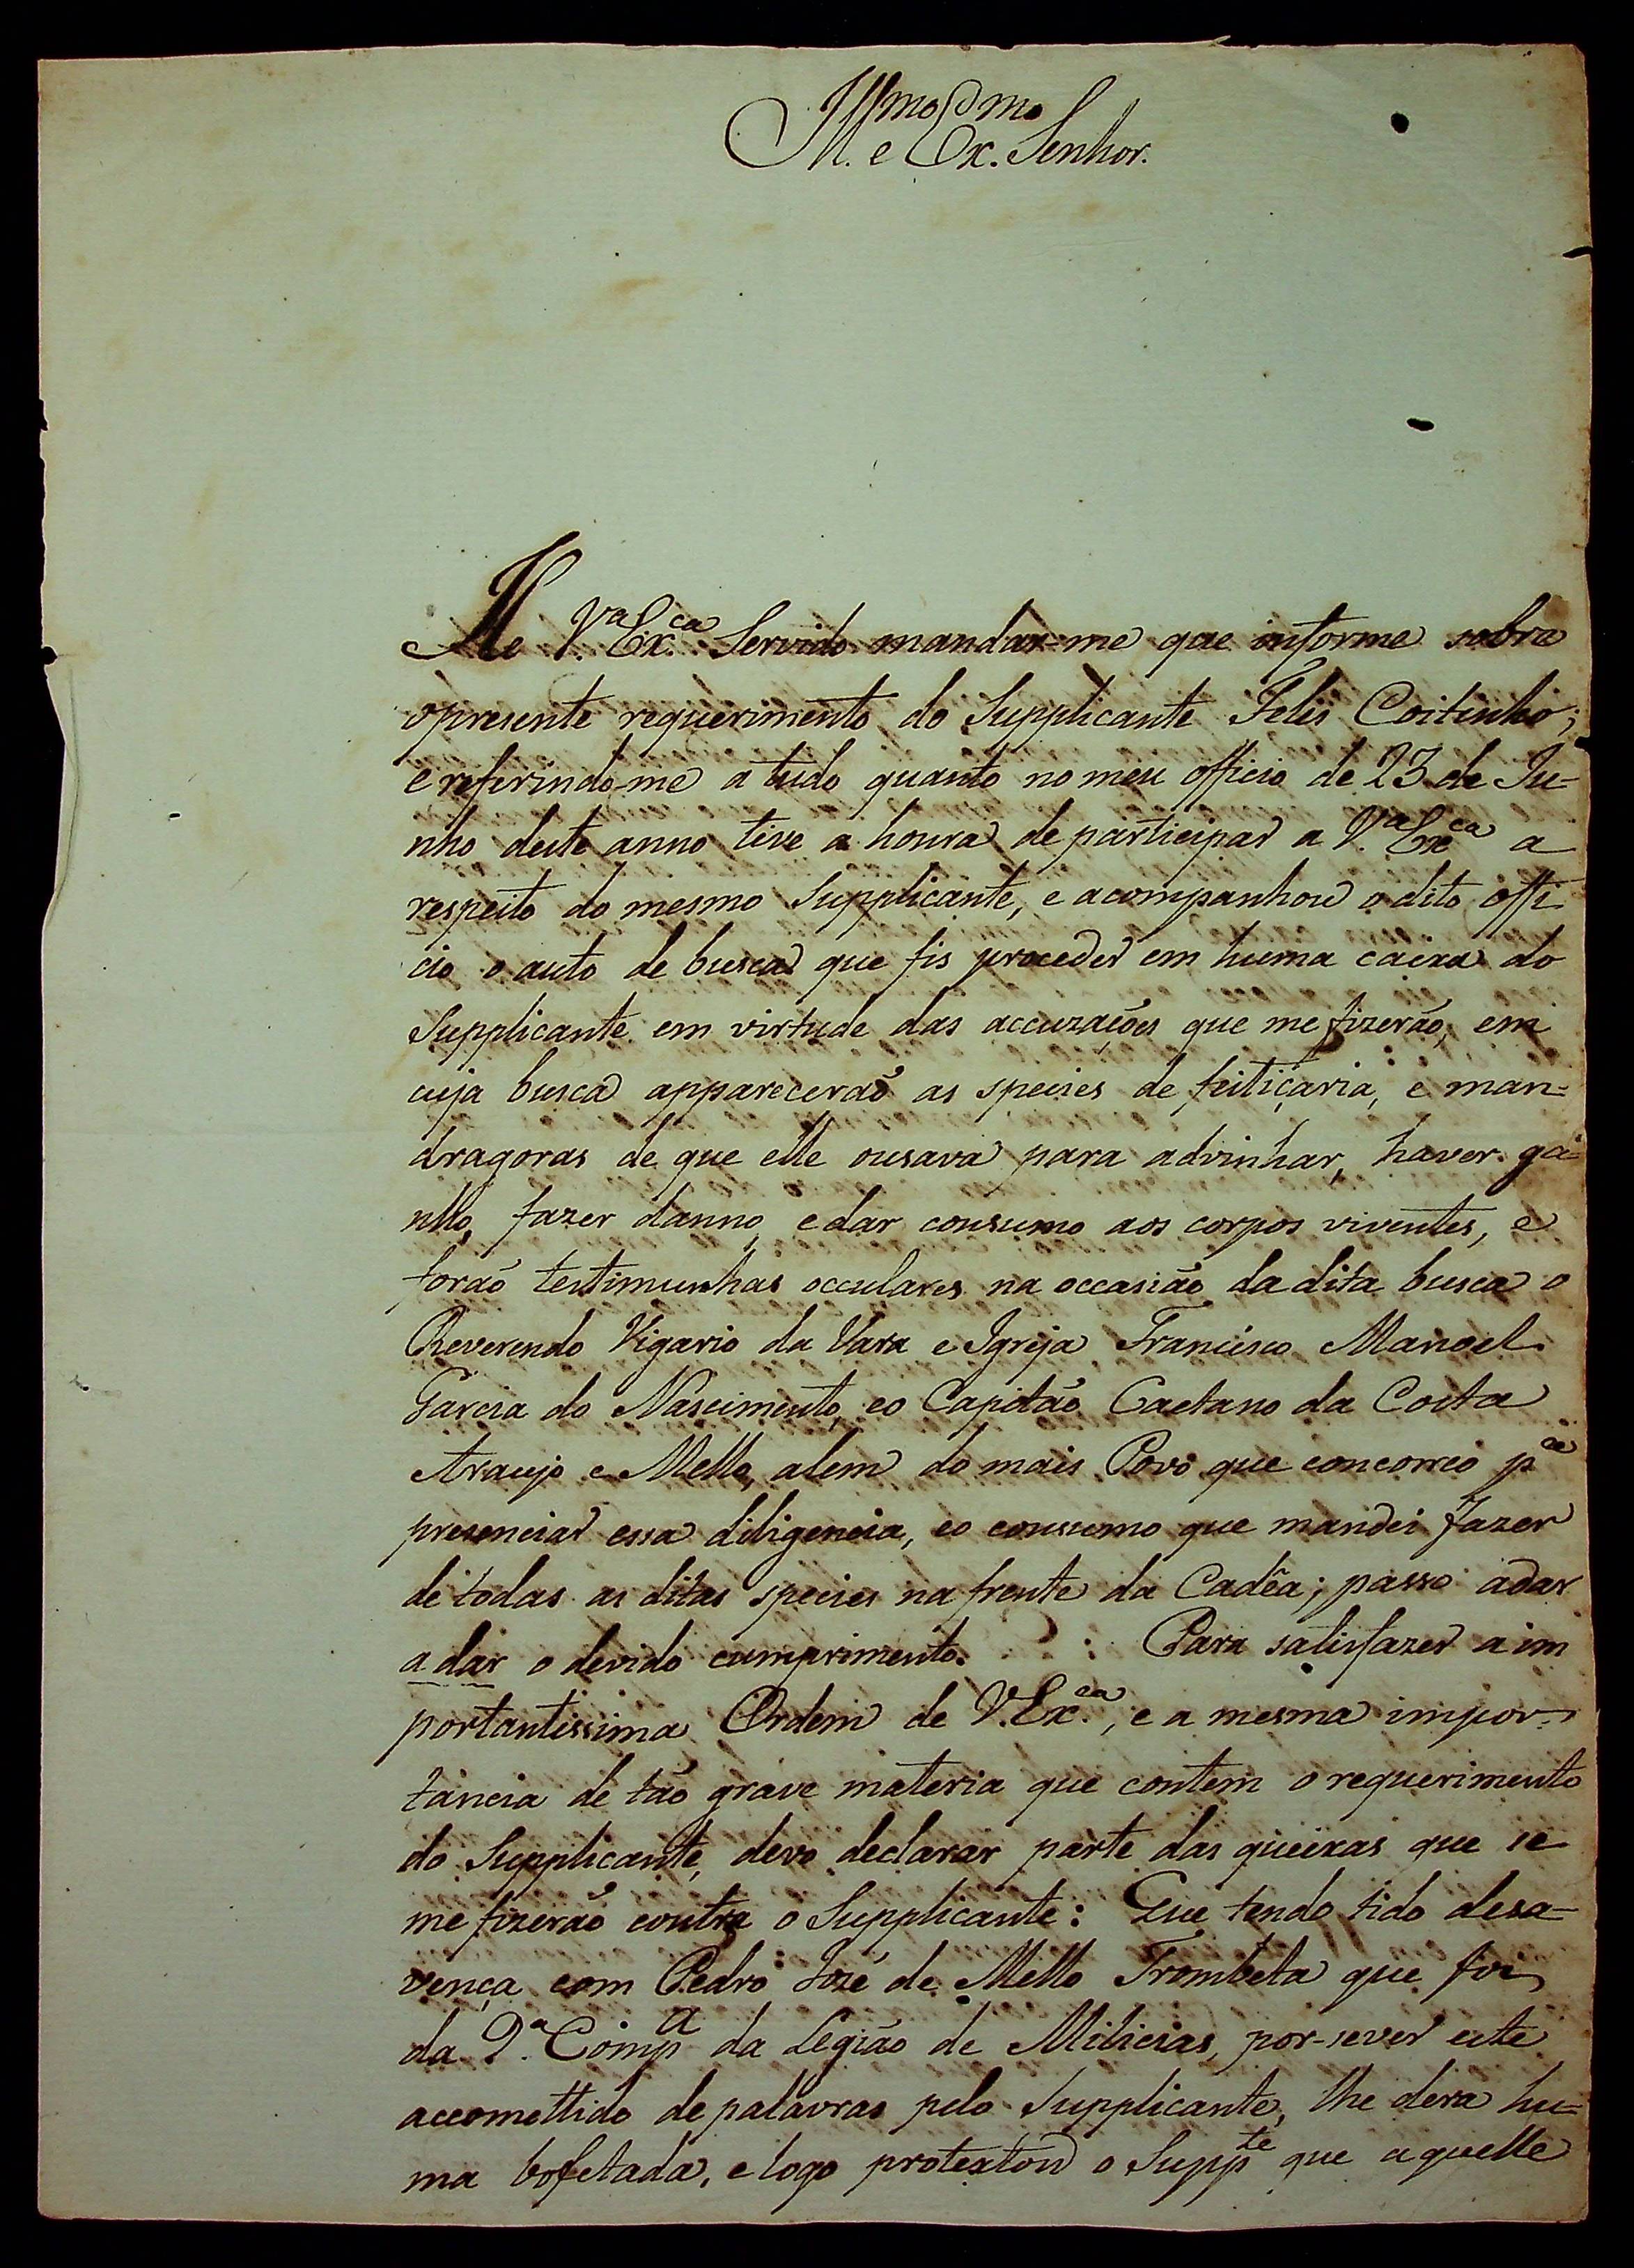 Ill.mo e Ex.mo Senhor.
He V.a Ex.ca Servido mandar-me que informe sobre
opresente requerimento do Supplicante Felis Coitinho;
e referindo-me a tudo quanto no meu officio de 23 de Ju-
nho deste anno tive a honra de participar a V.a Ex.ca a
respeito do mesmo Supplicante, e acompanhou o dito offi
cio o auto de busca que fis proceder em huma caixa do
Supplicante em virtude das accuzações que me fizerão, em
cuja busca apparecerão as species de feitiçaria, e man=
dragoras de que elle ousava para advinhar, haver ga=
nho, fazer danno, e dar consumo aos corpos viventes, e
forão testimunhas occulares na occasião da dita busca o
Reverendo Vigario da Vara e Igreja Francisco Manoel
Garcia do Nascimento, eo Capitão Caetano da Costa
Araujo e Mello, alem do mais Povo que concorreo p.a
presenciar essa diligencia, eo consumo que mandei fazer
de todas as ditas species na frente da Cadêa; passo adar
a dar o devido cumprimento. Para satisfazer a im
portantissima Ordem de V. Ex.ca, e a mesma impor=
tancia de tão grave materia que contem o requerimento
do Supplicante, devo declarar parte das queixas que se
me fizerão contra o Supplicante: Que tendo tido desa=
vença com Pedro José de Mello Trombeta que foi
da 2.a Comp.a da Legião de Milicias, por-sever este
accomettido de palavras pelo Supplicante, lhe dera hu=
ma bofetada, e logo protextou o Supp.te que aquelle